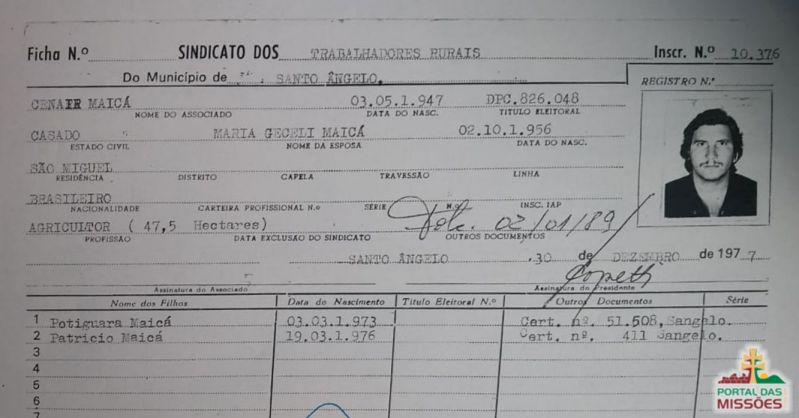 Ficha N.º SINDICATO DOS TRABALHADORES RURAIS Inscr. N.º 10.376
Do Município de SANTO ÂNGELO.
REGISTRO N.º
CENAIR MAICÁ 03.05.1.947 DPC.826.048
NOME DO ASSOCIADO DATA DO NASC. TITULO ELEITORAL
CASADO MARIA GECELI MAICÁ 02.10.1.956
ESTADO CIVIL NOME DA ESPOSA DATA DO NASC.
SÃO MIGUEL
RESIDÊNCIA DISTRITO CAPELA TRAVESSÃO LINHA
BRASILEIRO
NACIONALIDADE CARTEIRA PROFISSIONAL N.o SÉRIE N.o INSC. IAP
AGRICULTOR ( 47,5 Hectares) 02/01/89
PROFISSÃO DATA EXCLUSÃO DO SINDICATO OUTROS DOCUMENTOS
SANTO ÂNGELO .30 de DEZEMBRO de 1977
Assinatura do Associado Assinatura do Presidente
Nome dos Filhos Data do Nascimento Titulo Eleitoral N.º Outros Documentos Série
1 Potiguara Maicá 03.03.1.973 Cert. nº. 51.508, Sangelo.
2 Patricio Maicá 19.03.1.976 Cert. nº. 411 Sangelo.
3
4
5
6
7
PORTAL DAS
MISSÕES